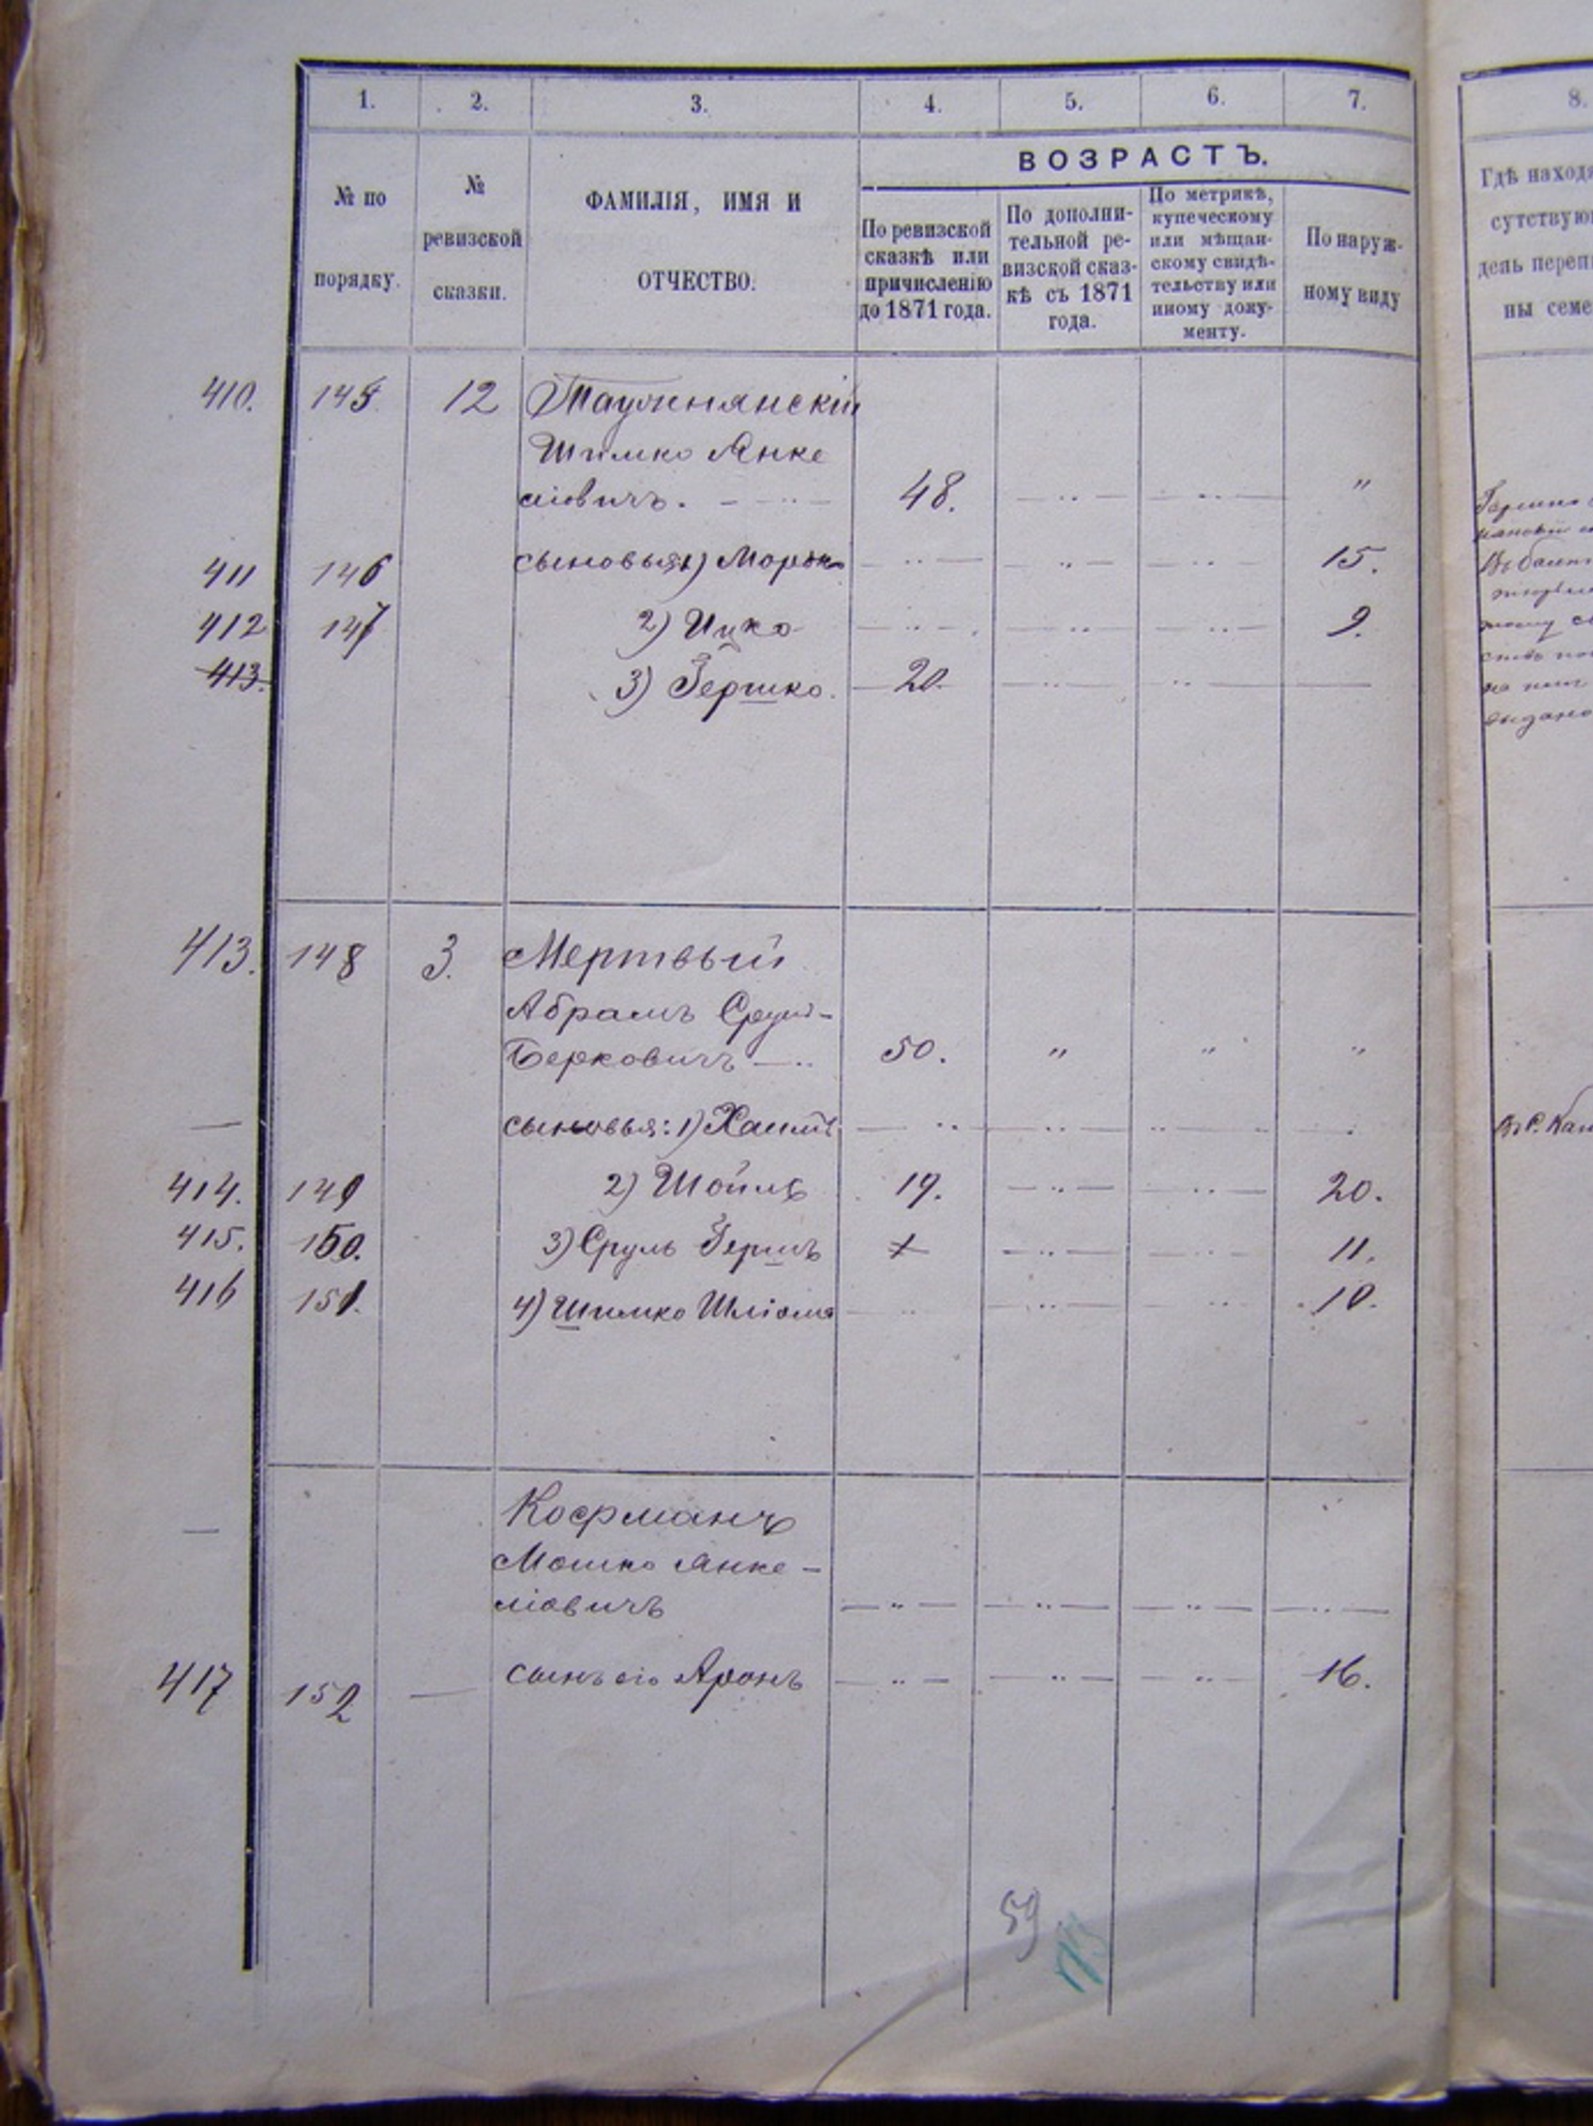 1. 2. 3. 4. 5. 6. 7. 8.
№ по порядку.
№ ревизской сказки.
ФАМИЛІЯ, ИМЯ И ОТЧЕСТВО.
ВОЗРАСТЪ.
По ревизской сказкѣ или причисленію до 1871 года.
По дополни-
тельной ре-
визской сказ-
кѣ съ 1871
года.
По метрикѣ,
купеческому
или мѣщан-
скому свидѣ-
тельству или
иному доку-
менту.
По наруж-
ному виду
Гдѣ
день
ны
410. 145 12
Шимко Янке
ліовичъ. 48. "
411 146 сыновья 1) Мордко 15.
412 147 2) Ицко 9.
413. 3) Гершко. 20.
413. 148 3. Мертвый
Абрамъ Сруль-
Берковичъ 50. " " "
сыновья: 1) Хаимъ
414. 149 2) Шойль 19. 20.
415. 150. 3) Сруль Гершъ 11.
416 151. 4) Шимко Шліома 10.
Кофманъ
Мошко Янке-
ліовичъ
417 152 сынъ его Аронъ 16.
59